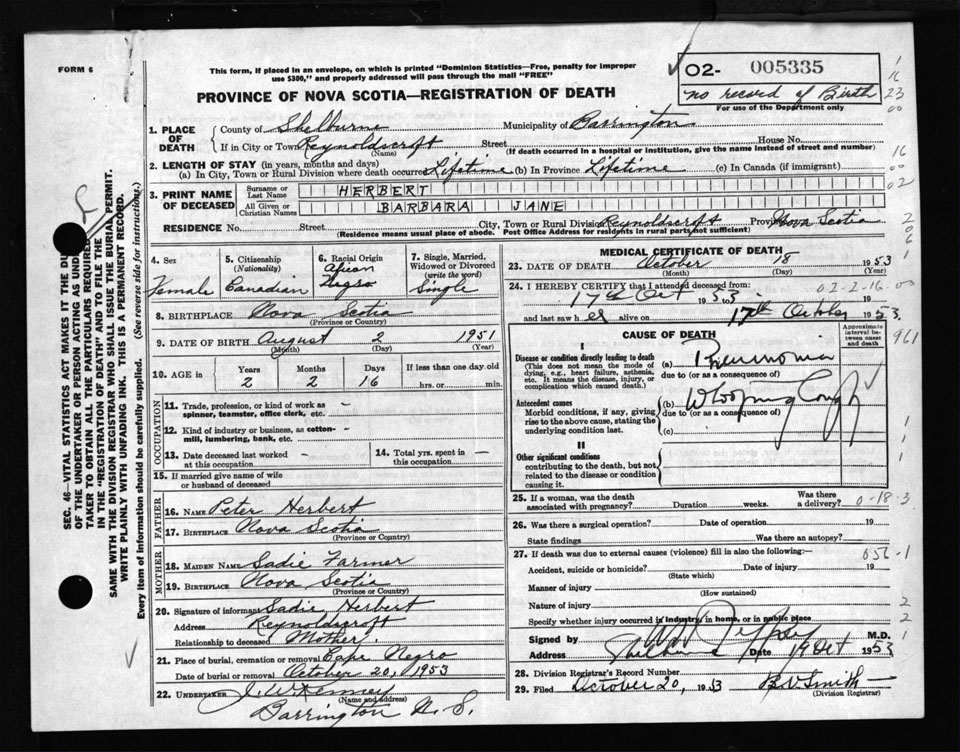 FORM 6
This form, if placed in an envelope, on which is printed "Dominion Statistics—Free, penalty for improper
use $300," and properly addressed will pass through the mail "FREE"
PROVINCE OF NOVA SCOTIA—REGISTRATION OF DEATH
O2- 005335
no record of Birth
For use of the Department only
1. PLACE OF DEATH
County of Shelburne Municipality of Barrington
If in City or Town Reynoldscroft Street House No.
(Name) (If death occurred in a hospital or institution, give the name instead of street and number)
2. LENGTH OF STAY (in years, months and days)
(a) In City, Town or Rural Division where death occurred Lifetime (b) In Province Lifetime (c) In Canada (if immigrant)
3. PRINT NAME OF DECEASED
Surname or Last Name HERBERT
All Given or Christian Names BARBARA JANE
RESIDENCE No. Street City, Town or Rural Division Reynoldscroft Province Nova Scotia
(Residence means usual place of abode. Post Office Address for residents in rural parts not sufficient)
4. Sex
Female
5. Citizenship
(Nationality)
Canadian
6. Racial Origin
African
Negro
7. Single, Married,
Widowed or Divorced
(write the word)
Single
8. BIRTHPLACE Nova Scotia
(Province or Country)
9. DATE OF BIRTH August 2 1951
(Month) (Day) (Year)
10. AGE in
Years Months Days If less than one day old
2 2 16 hrs. or min.
OCCUPATION
11. Trade, profession, or kind of work as -
spinner, teamster, office clerk, etc.
12. Kind of industry or business, as cotton-
mill, lumbering, bank, etc. -
13. Date deceased last worked
at this occupation -
14. Total yrs. spent in
this occupation -
15. If married give name of wife
or husband of deceased
FATHER
16. NAME Peter Herbert
17. BIRTHPLACE Nova Scotia
(Province or Country)
MOTHER
18. MAIDEN NAME Sadie Farmer
19. BIRTHPLACE Nova Scotia
(Province or Country)
20. Signature of informant Sadie Herbert
Address Reynoldscroft
Relationship to deceased Mother.
21. Place of burial, cremation or removal Cape Negro
Date of burial or removal October 20, 1953
22. UNDERTAKER
(Name and address)
Barrington N. S.
MEDICAL CERTIFICATE OF DEATH
23. DATE OF DEATH October 18 1953
(Month) (Day) (Year)
24. I HEREBY CERTIFY that I attended deceased from:
02-2-16-00
17th Oct 1953
and last saw her alive on 17th October 1953
CAUSE OF DEATH
Approximate
interval be-
tween onset
and death
961
I
Disease or condition directly leading to death
(This does not mean the mode of
dying, e.g., heart failure, asthenia,
etc. It means the disease, injury, or
complication which caused death.)
(a) Pneumonia
due to (or as a consequence of)
Antecedent causes
Morbid conditions, if any, giving
rise to the above cause, stating the
underlying condition last.
(b) Whooping Cough
due to (or as a consequence of)
(c)
II
Other significant conditions
contributing to the death, but not
related to the disease or condition
causing it.
25. If a woman, was the death
associated with pregnancy? Duration weeks. Was there
a delivery?
0-18-3
26. Was there a surgical operation? Date of operation 19
State findings Was there an autopsy?
27. If death was due to external causes (violence) fill in also the following:—
056-1
Accident, suicide or homicide? Date of injury 19
(State which)
Manner of injury
(How sustained)
Nature of injury
Specify whether injury occurred in industry, in home, or in public place
Signed by M.D.
Address Shelburne Date 19 Oct 1953
28. Division Registrar's Record Number
29. Filed October 20, 1953 B.V. Smith
(Division Registrar)
SEC. 46—VITAL STATISTICS ACT MAKES IT THE
OF THE UNDERTAKER OR PERSON ACTING AS
TAKER TO OBTAIN ALL THE PARTICULARS
IN THE "REGISTRATION OF DEATH" AND TO FILE THE
SAME WITH THE DIVISION REGISTRAR WHO SHALL ISSUE THE BURIAL PERMIT.
WRITE PLAINLY WITH UNFADING INK. THIS IS A PERMANENT RECORD.
Every item of information should be carefully supplied. (See reverse side for instructions.)